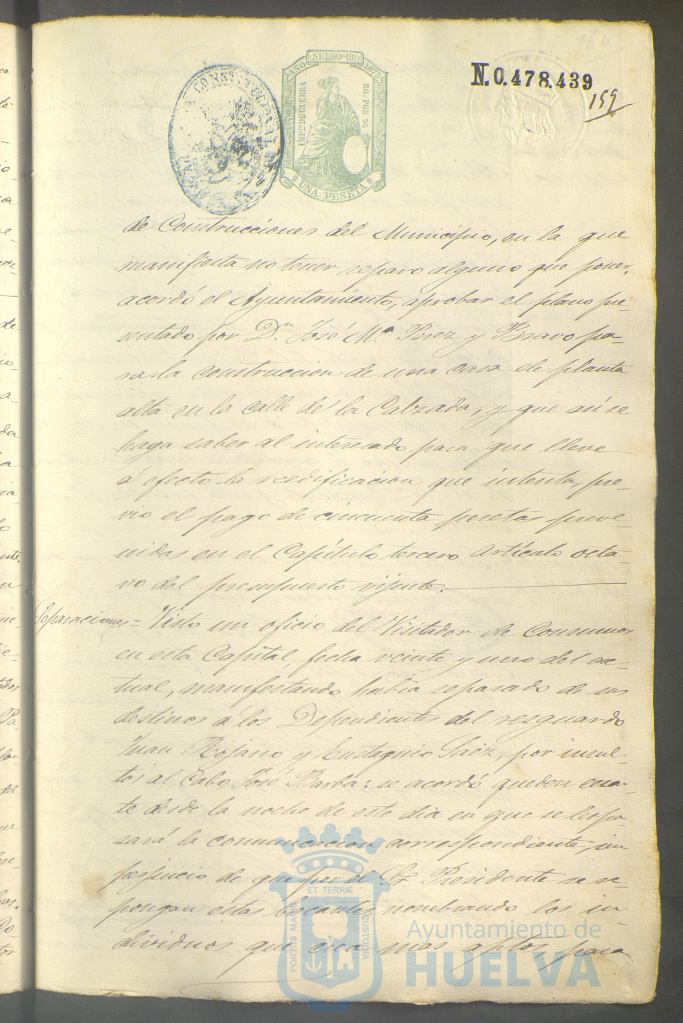 AÑO SELLO 10º 1879
IMPTO DE GUERRA
50. POR %
UNA PESETA
CONSTITUCIONAL
N.0.478.439
160
159
de Construcciones del Municipio, en la que
manifiesta no tener reparo alguno que poner,
acordó el Ayuntamiento, aprobar el plano pre-
sentado por Dn. José Mª Perez y Bravo pa-
ra la construccion de una casa de planta
alta en la calle de la Calzada, y que así se
haga saber al interesado para que lleve
á efecto la reedificacion que intenta, pre-
vio el pago de cincuenta pesetas preve-
nidas en el Capítulo tercero artículo octa-
vo del presupuesto vijente.
Separaciones = Visto un oficio del Visitador de Consumos
en esta Capital, fecha veinte y uno del ac-
tual, manifestando había separado de sus
destinos á los Dependientes del resguardo
Juan Rofano y Eustaquio Saez, por insul-
tos al Cabo José Barba: se acordó queden cesan-
te desde la noche de este dia en que se les pa-
sará la comunicacion correspondiente, sin
perjuicio de que por el Sr. Presidente se re-
pongan estas bacantes nombrando los in-
dividuos que crea mas aptos para
PORTUS MARIS ET TERRÆ CUSTODIA
Ayuntamiento de
HUELVA